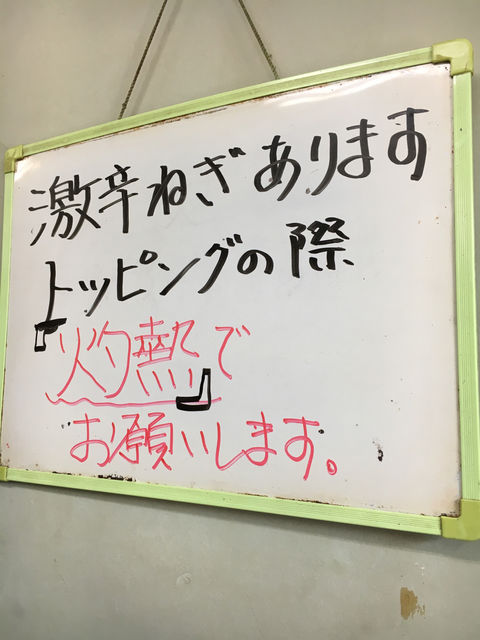 激辛ねぎあります
トッピングの際
『灼熱』で
お願いします。